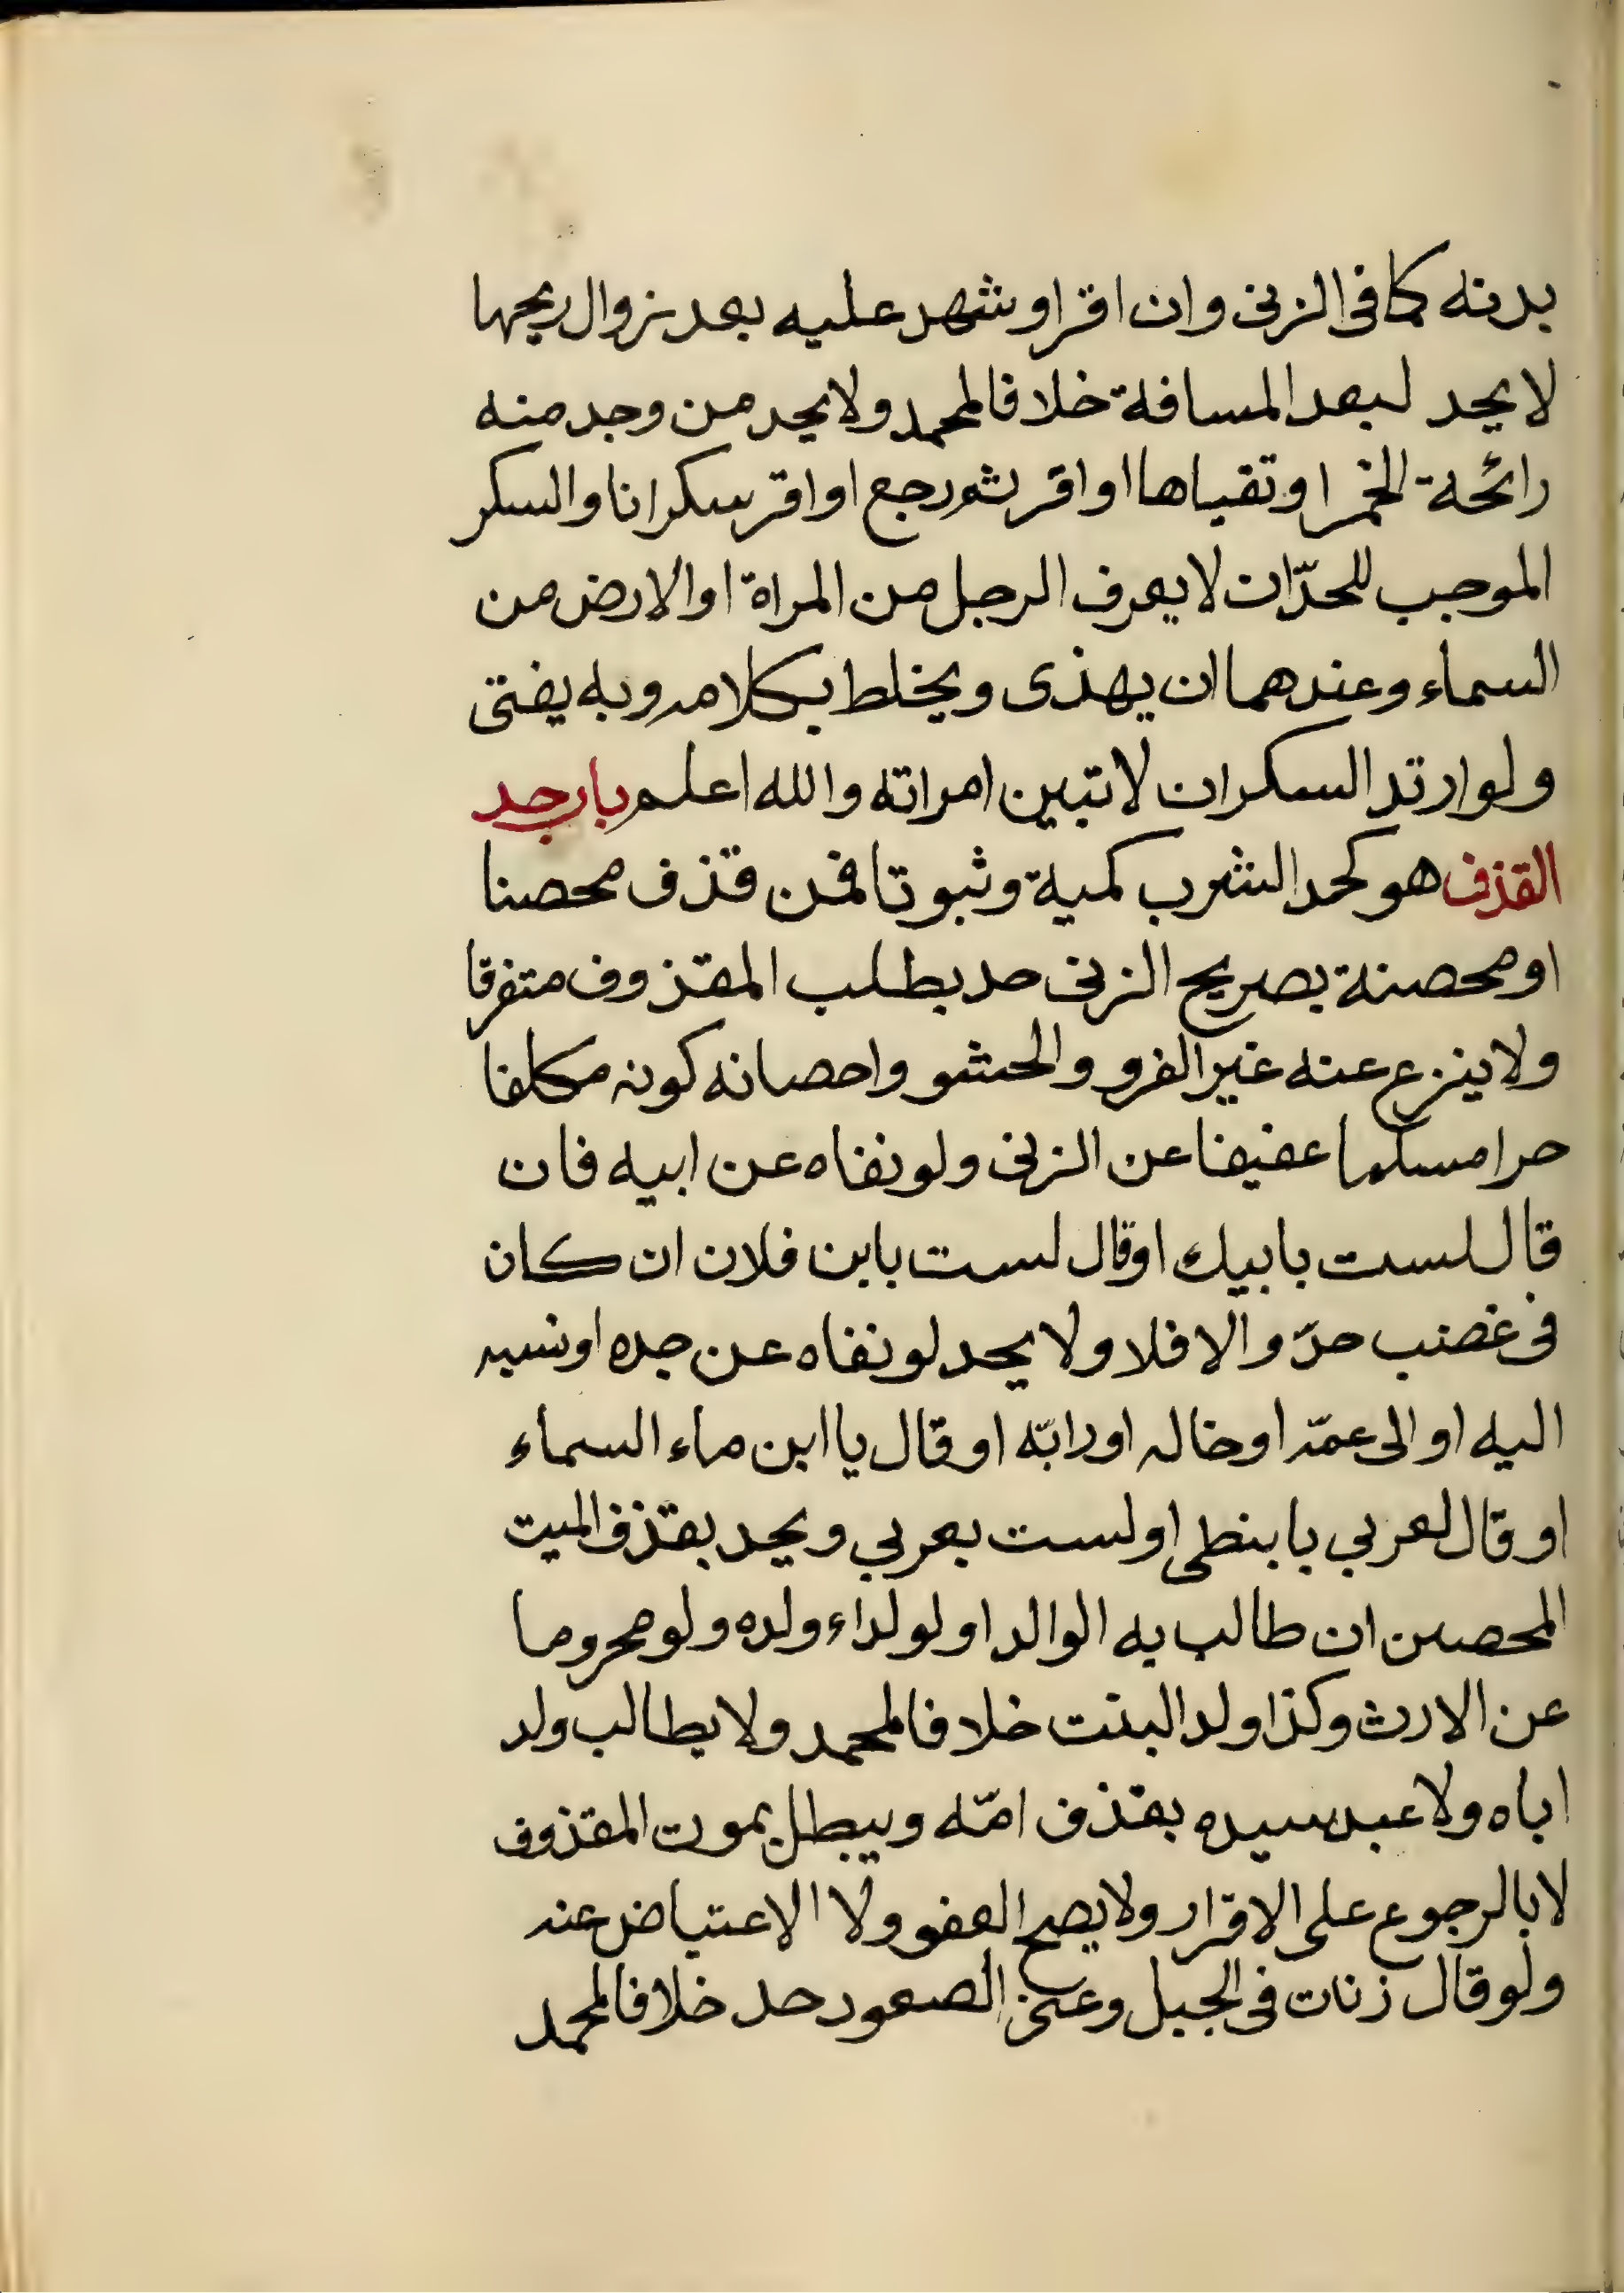 بدنه كما فى الزنى وان اقر او شهد عليه بعد زوال ريحها
لا يحد لبعد المسافة خلافا لمحمد ولا يحد من وجد منه
رائحة الخمر او تقياها او اقر ثم رجع او اقر سكرانا والسكر
الموجب للحدّ ان لا يعرف الرجل من المراة او الارض من
السماء وعندهما ان يهذى ويخلط بكلامه وبه يفتى
ولو ارتد السكران لا تبين امراته والله اعلم باب حد
القذف هو كحد الشرب كمية وثبوتا فمن قذف محصنا
او محصنة بصريح الزنى حد بطلب المقذوف متفرقا
ولا ينزع عنه غير الفرو والحشو واحصانه كونه مكلفا
حرا مسلما عفيفا عن الزنى ولو نفاه عن ابيه فان
قال لست بابيك او قال لست بابن فلان ان كان
فى غضب حدّ والا فلا ولا يحد لو نفاه عن جده او نسبه
اليه او الى عمّه او خاله او رابّه او قال يا ابن ماء السماء
او قال لعربي يا بنطى او لست بعربي ويحد بقذف الميت
المحصن ان طالب به الوالد او لو لداء ولده ولو محروما
عن الارث وكذا ولد البنت خلافا لمحمد ولا يطالب ولد
اباه ولا عبد سيده بقذف امّه ويبطل بموت المقذوف
لا بالرجوع على الاقرار ولا يصح العفو ولا الاعتياض عنه
ولو قال زنات فى الجبل وعنى الصعود حد خلافا لمحمد